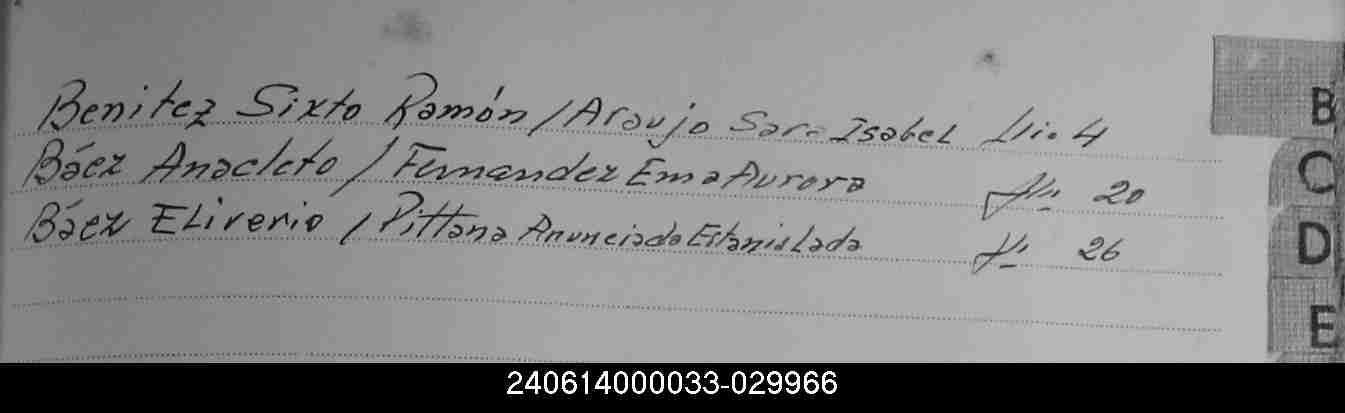 Benitez Sixto Ramón / Araujo Sara Isabel 4
Báez Anacleto / Fernandez Ema Aurora 20
Báez Eliverio / Pittana Anunciada Estanislada 26
B
C
D
E
240614000033-029966